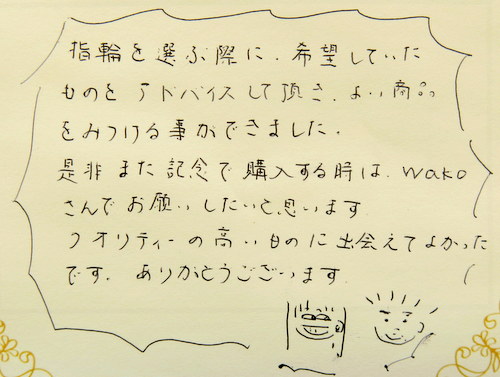 指輪を選ぶ際に、希望していた
ものをアドバイスして頂き、よい商品
をみつける事ができました。
是非また記念で購入する時は、wako
さんでお願いしたいと思います。
クオリティーの高いものに出会えてよかった
です。ありがとうございます。